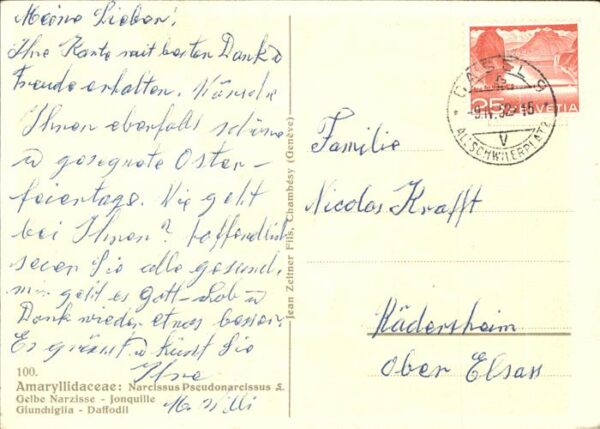 Meine Lieben!
Ihre Karte mit besten Dank u
Freude erhalten. Wünsche
Ihnen ebenfalls schöne
u gesegnete Oster-
feiertage. Wie geht
bei Ihnen? hoffendlich
seien Sie alle gesund,
mir geht es Gott-Lob u
Dank wieder etwas besser.
Es grüsst u küsst Sie
Ihre
M. Willi
100.
Amaryllidaceae: Narcissus Pseudonarcissus L.
Gelbe Narzisse - Jonquille
Giunchiglia - Daffodil
Jean Zeltner Fils, Chambésy (Genève)
25 HELVETIA
BASEL 9
9.IV.52-15
V
ALLSCHWILERPLATZ
Familie
Nicolas Krafft
Rädersheim
Ober Elsass